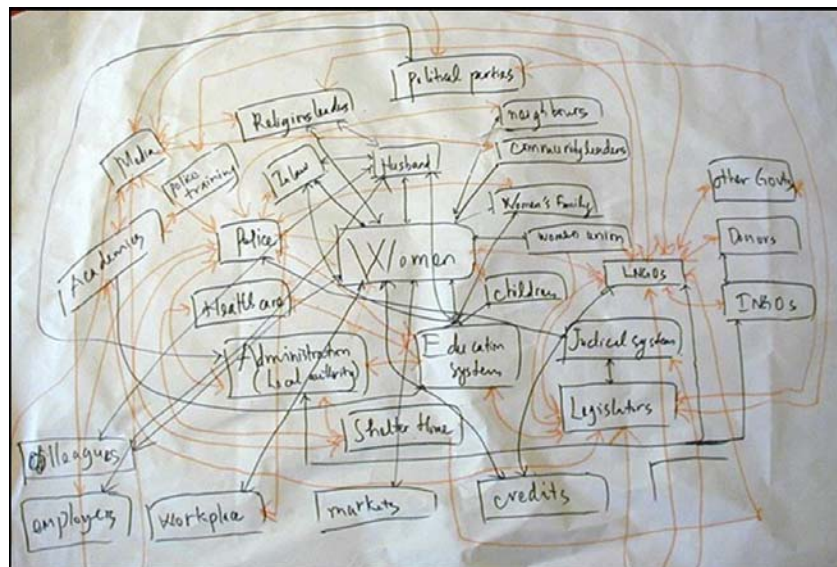 Political parties
Religious leaders
neighbours
Media
Police
training
In law
Husband
Community leaders
Women's Family
other Govts
Academics
Police
Women
women union
Donors
LNGOs
INGOs
Health care
children
Administration
(Local authority)
Education
system
Judical system
Legislators
Shelter Home
Colleagues
employers
workplace
markets
credits